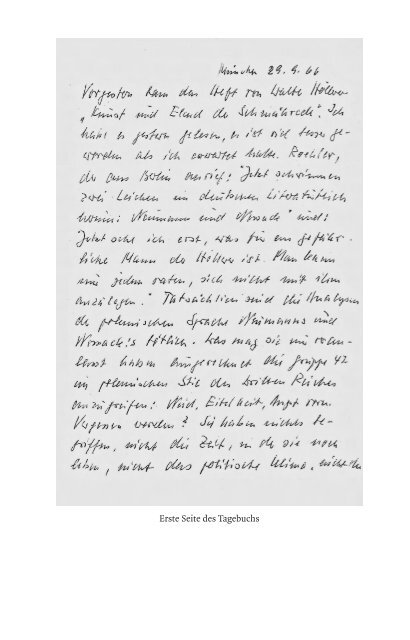 München 29. 9. 66
Vorgestern kam das Heft von Walter Höllerer
„Kunst und Elend der Schmährede“. Ich
habe es gestern gelesen, es ist viel besser ge-
worden als ich erwartet hatte. Roehler,
der aus Berlin anrief: "Jetzt schwimmen
zwei Leichen im deutschen Literaturteich
herum: Neumann und Worsack" und:
Jetzt sehe ich erst, was für ein gefähr-
licher Mann der Höllerer ist. Man kann
nur jedem raten, sich nicht mit ihm
anzulegen." Tatsächlich sind die Analysen
der polemischen Sprache Neumanns und
tödlich. Was mag sie nur veran-
lasst haben ausgerechnet die Gruppe 47
im polemischen Stil des Dritten Reiches
anzugreifen? Neid, Eitelkeit, Angst vorm
Vergessen werden? Sie haben nichts be-
griffen, nicht die Zeit, in der sie noch
leben, nicht das politische Klima, nicht den
Erste Seite des Tagebuchs